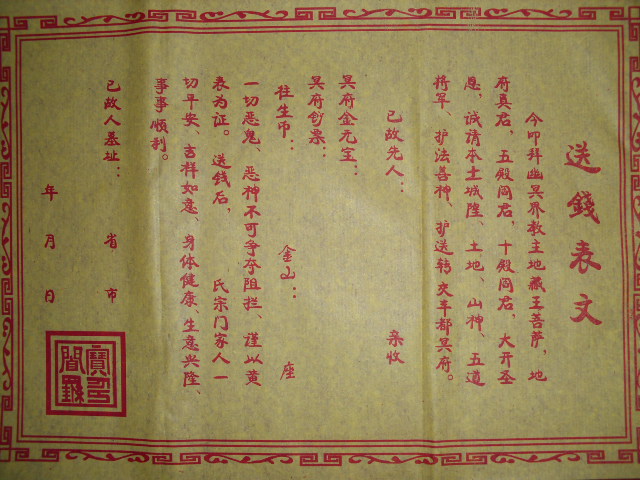 送錢表文
今叩拜幽冥界教主地藏王菩萨，地
府真君，五殿阎君，十殿阎君，大开圣
恩，诚请本土城隍、土地、山神、五道
将军、护法善神、护送转交丰都冥府。
已故先人： 亲收
冥府金元宝：
冥府钞票：
往生币： 金山： 座
一切恶鬼、恶神不可争夺阻拦、谨以黄
表为证。送钱后， 氏宗门家人一
切平安、吉祥如意、身体健康、生意兴隆、
事事顺利。
已故人墓址： 省 市
年 月 日